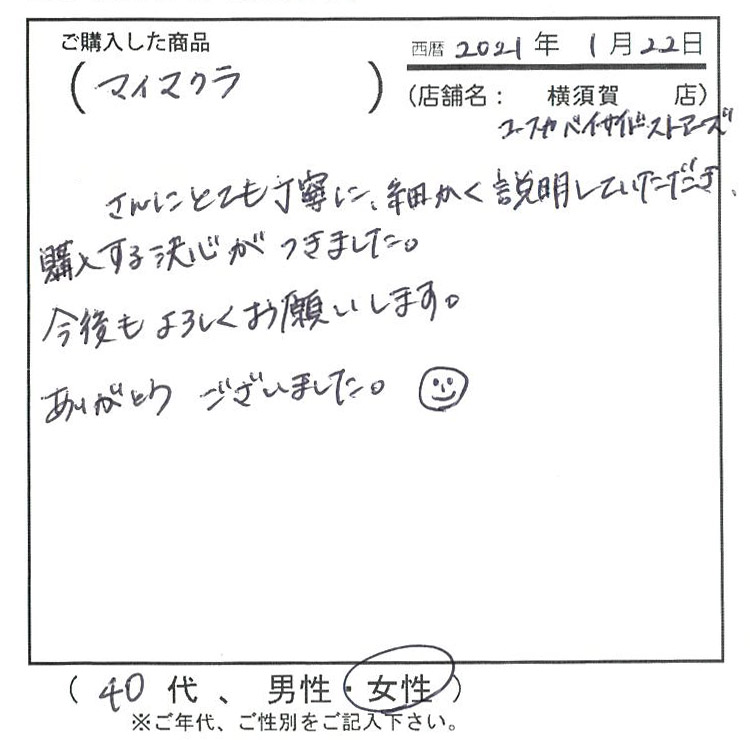 ご購入した商品
西暦 2021年 1月22日
(マイマクラ)
(店舗名： 横須賀 店)
コースカベイサイドストアーズ
さんにとても丁寧に、細かく説明していただき、
購入する決心がつきました。
今後もよろしくお願いします。
ありがとうございました。
(40代、男性・女性)
※ご年代、ご性別をご記入下さい。